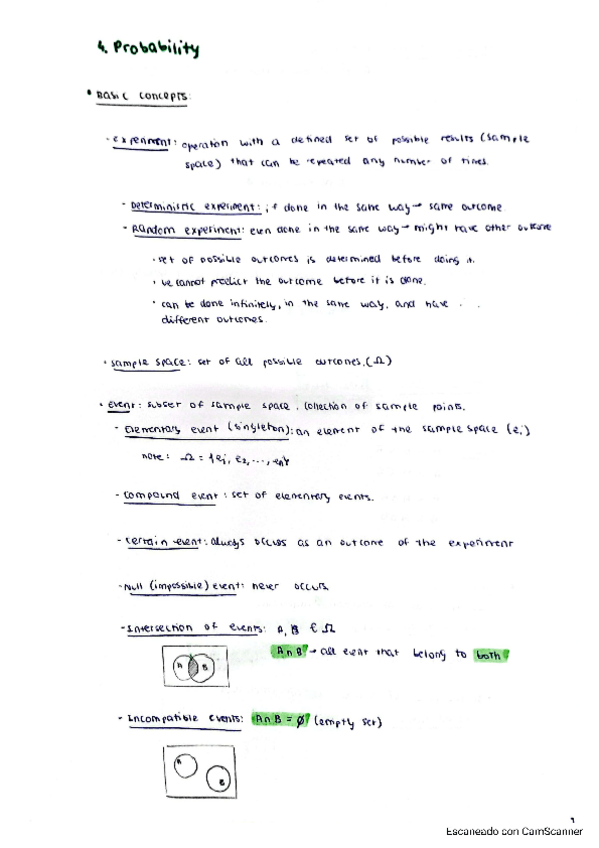 4. Probability
• Basic concepts:
- experiment: operation with a defined set of possible results (sample
space) that can be repeated any number of times.
- Deterministic experiment: if done in the same way → same outcome.
- Random experiment: even done in the same way → might have other outcome
• set of possible outcomes is determined before doing it.
• we cannot predict the outcome before it is done.
• can be done infinitely, in the same way, and have . .
different outcomes.
• sample space: set of all possible outcomes. (Ω)
• Event: subset of sample space. Collection of sample points.
- Elementary event (singleton): an element of the sample space (ei)
note: Ω = {e1, e2, ..., en}
- compound event: set of elementary events.
- certain event: always occurs as an outcome of the experiment
- Null (impossible) event: never occurs.
- Intersection of events: A, B ∈ Ω
A ∩ B → all event that belong to both
A B
- Incompatible events: A ∩ B = ∅ (empty set)
A
B
1
Escaneado con CamScanner